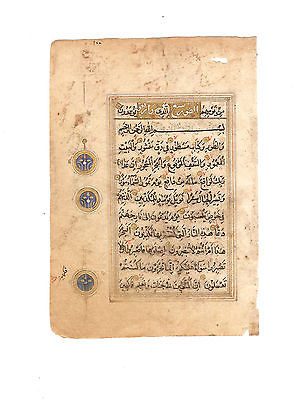 من يومهم الذي يوعدون
بسم الله الرحمن الرحيم
والطور وكتاب مسطور في رق منشور والبيت
المعمور والسقف المرفوع والبحر المسجور ان عذاب
ربك لواقع ما له من دافع يوم تمور السماء مورا
وتسير الجبال سيرا فويل يومئذ للمكذبين الذين
هم في خوض يلعبون يوم يدعون الى نار جهنم
دعا هذه النار التي كنتم بها تكذبون افسحر
هذا ام انتم لا تبصرون اصلوها فاصبروا او لا
تصبروا سواء عليكم انما تجزون ما كنتم
تعملون ان المتقين في جنات ونعيم فاكهين